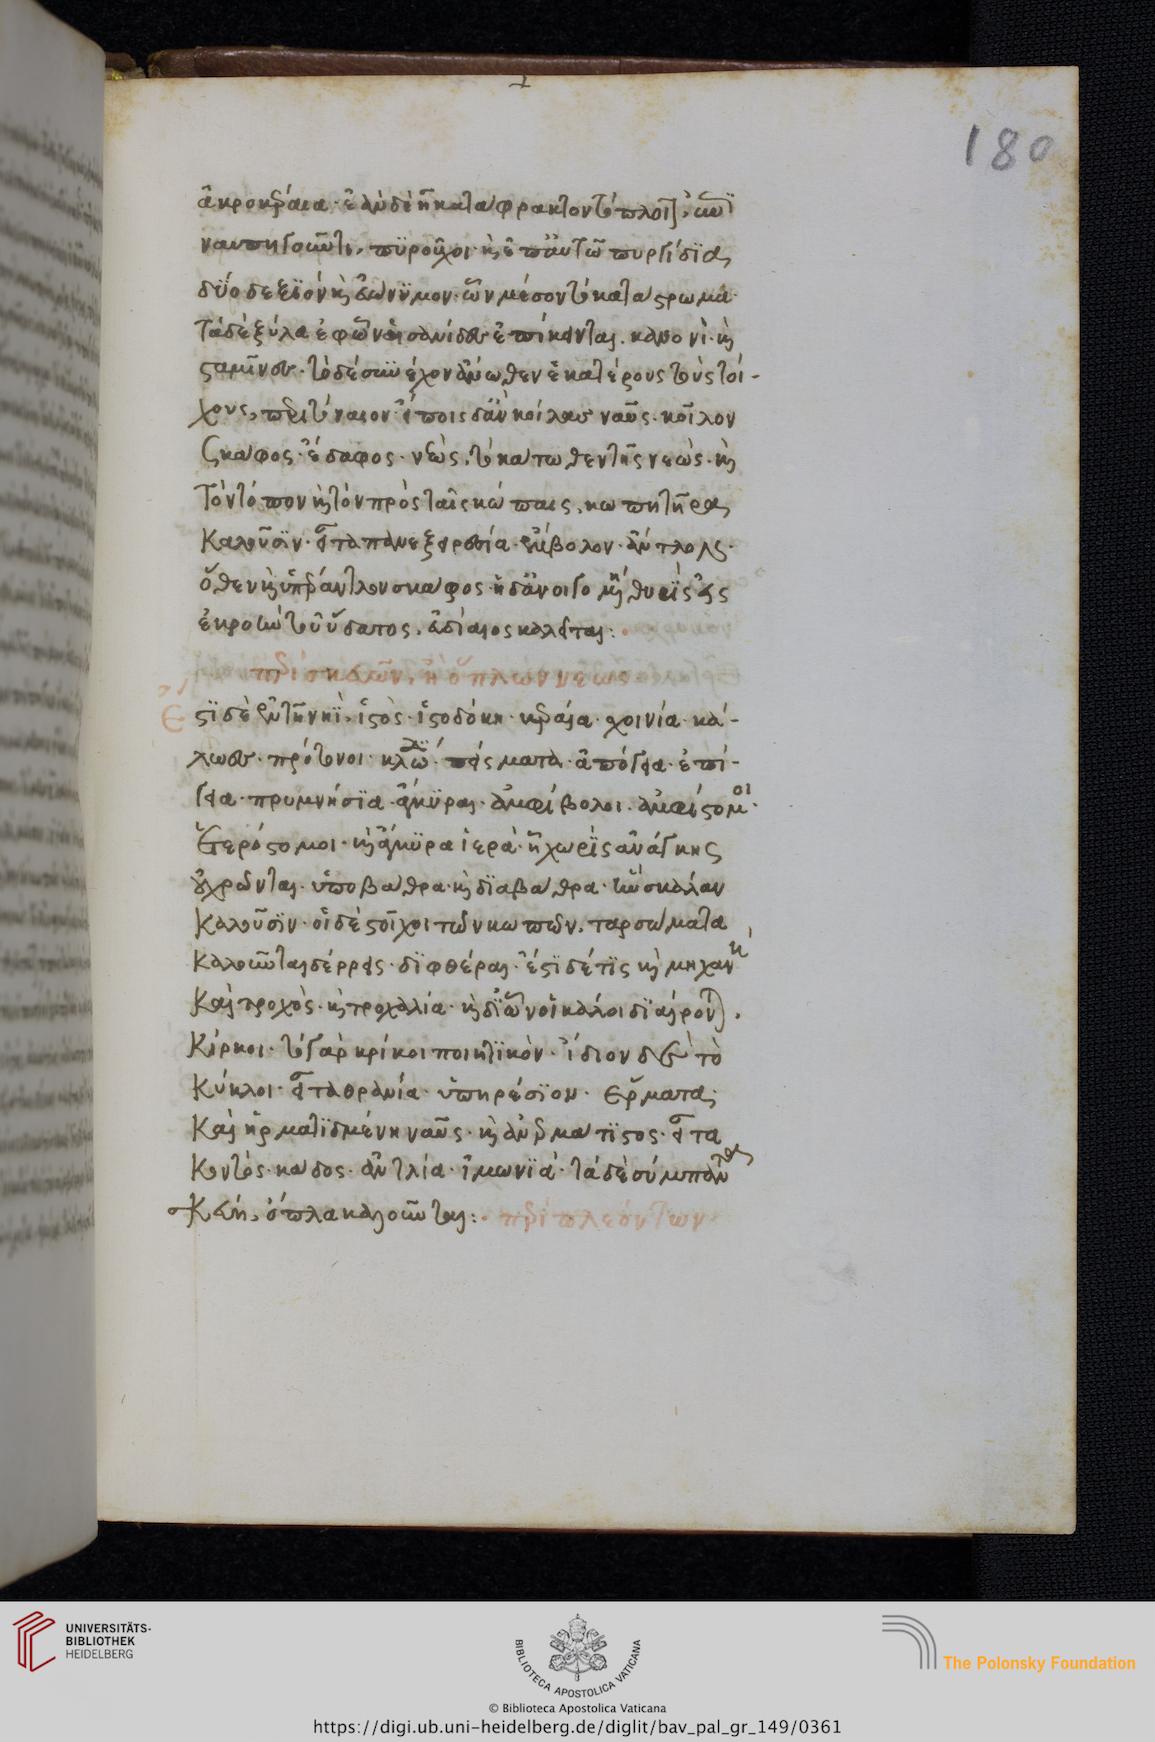 180
ἀκροκεραία· ἐὰν δὲ ᾖ κατάφρακτον τὸ πλοῖον, ἐπι
ναυπηγοῦνται πύργοι· καὶ ἐπ' αὐτῶν πυργίδια
δύο δεξιὸν καὶ εὐώνυμον· ὧν μέσον τὸ κατάστρωμα·
τὰ δὲ ξύλα ἐφ' ὧν αἱ σανίδες ἐπίκεινται, κανόνια καὶ
σταμῖνες· τὸ δὲ συνέχον ἄνωθεν ἑκατέρους τοὺς τοί-
χους, περίτοναιον· εἴποις δ' ἂν κοίλας ναῦς· κοῖλον
σκάφος· ἔδαφος νεώς, τὸ κάτωθεν τῆς νεώς· καὶ
τὸν τόπον καὶ τὸν πρὸς ταῖς κώπαις, κωπητῆρα
καλοῦσιν· εἶτα παρεξειρεσία· ἔμβολον· ἄντλος·
ὅθεν καὶ ὑπέραντλον σκάφος
ἐκροὴ τοῦ ὕδατος, εὐδίαιος καλεῖται:
περὶ σκευῶν, ἢ ὅπλων νεώς
Ἔστι δὲ ἐν τῇ νηὶ, ἱστὸς· ἱστοδόκη· κεραία· σχοινία· κά-
λως· πρότονοι· πείσματα· ἀπόγεια· ἐπί-
γεια· πρυμνήσια· ἄγκυραι· ἀμφίβολοι· ἀμφίστομοι·
ἑτερόστομοι· καὶ ἄγκυρα ἱερὰ· ᾗ χωρὶς ἀνάγκης
οὐ χρῶνται· ὑποβάθρα· καὶ διαβάθρα· ἣν σκάλαν
καλοῦσιν· οἱ δὲ στοῖχοι τῶν κωπῶν, ταρσώματα
καλοῦνται δέρρεις· διφθέραι· ἔστι δέ τις καὶ μηχανὴ
καὶ τροχὸς· καὶ τροχαλία· καὶ δι' ὧν οἱ κάλοι διαίρονται,
κίρκοι· τὸ γὰρ κρίκοι ποιητικὸν· ἴδιον δὲ τὸ
κύκλοι· εἶτα θρανία· ὑπηρέσιον· ἕρματα·
καὶ ἡρματισμένη ναῦς· καὶ ἀνερμάτιστος· εἶτα
κοντὸς· κάδος· ἀντλία· ἱμονιά· τὰ δὲ σύμπαντα
σκεύη, ὅπλα καλοῦνται: περὶ πλεόντων
UNIVERSITÄTS-
BIBLIOTHEK
HEIDELBERG
BIBLIOTECA APOSTOLICA VATICANA
The Polonsky Foundation
© Biblioteca Apostolica Vaticana
https://digi.ub.uni-heidelberg.de/diglit/bav_pal_gr_149/0361